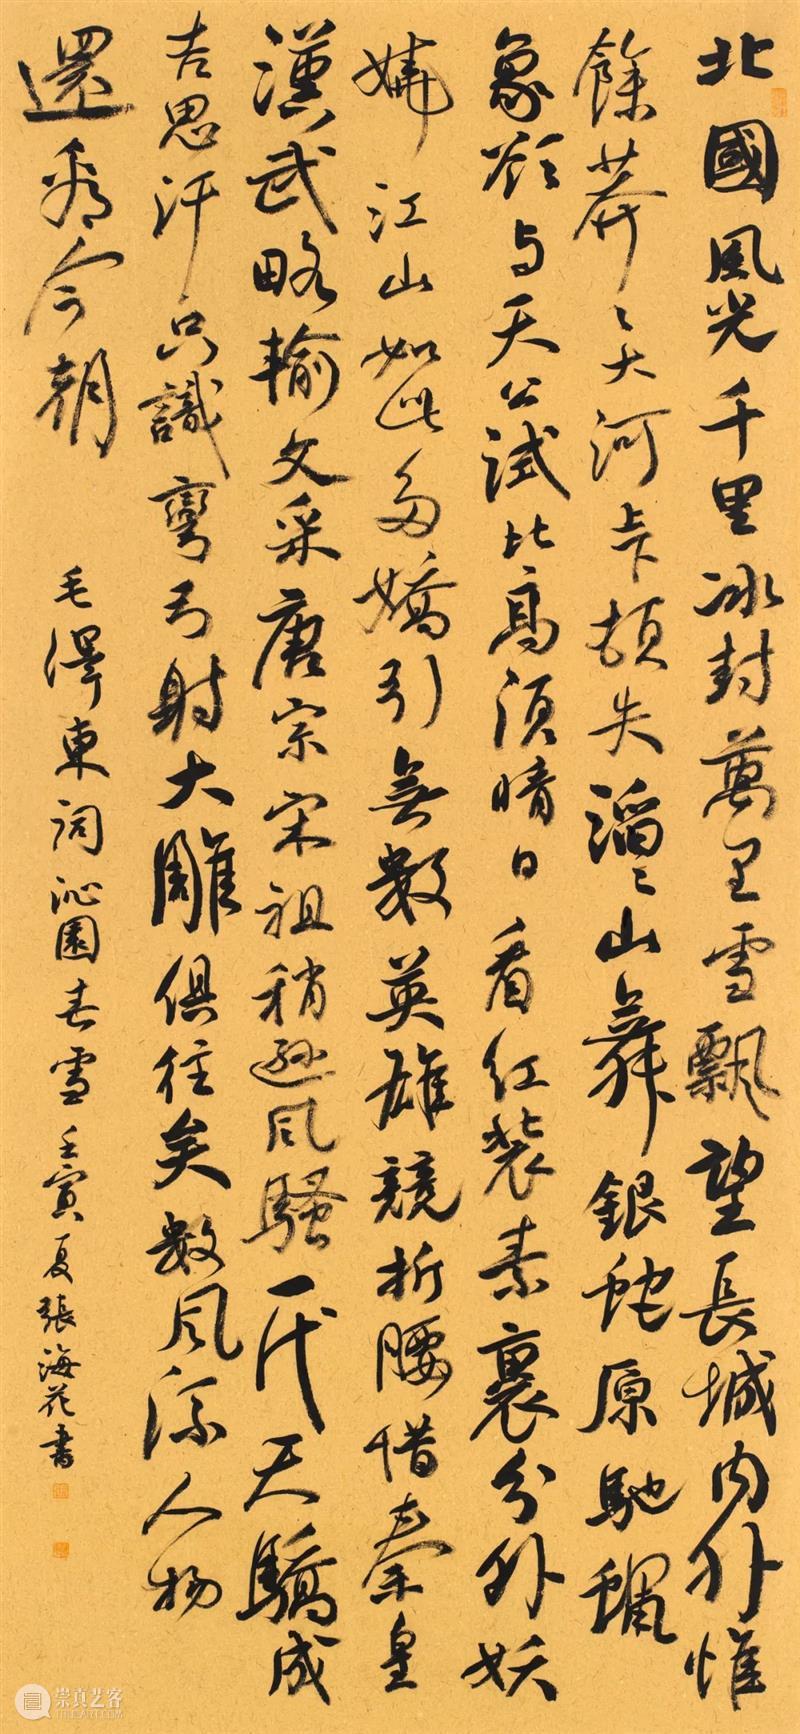 北國風光千里冰封萬里雪飄望長城内外惟
餘莽〻大河上下頓失滔〻山舞銀蛇原馳蠟
象欲与天公試比高須晴日看红裝素裹分外妖
嬈江山如此多嬌引無數英雄競折腰惜秦皇
漢武略輸文采唐宗宋祖稍遜風騷一代天驕成
吉思汗只識彎弓射大雕俱往矣數風流人物
還看今朝
毛澤東詞沁園春雪壬寅夏張海花書
崇真艺客